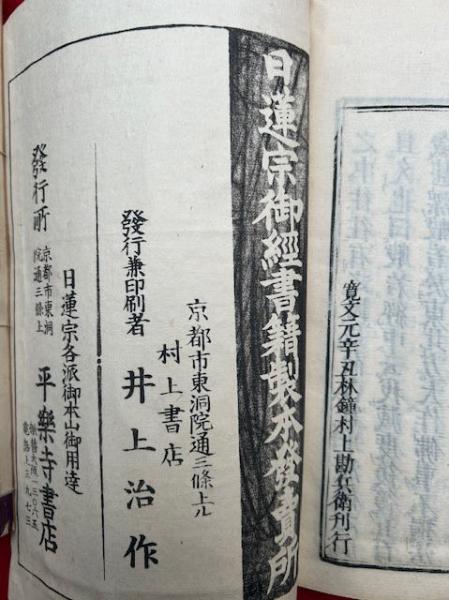 寛文元辛丑林鐘村上勘兵衛刊行
日蓮宗御經書籍製本發賣所
京都市東洞院通三條上ル
村上書店
發行兼印刷者 井上治作
日蓮宗各派御本山御用達
發行所 京都市東洞院通三條上 平樂寺書店